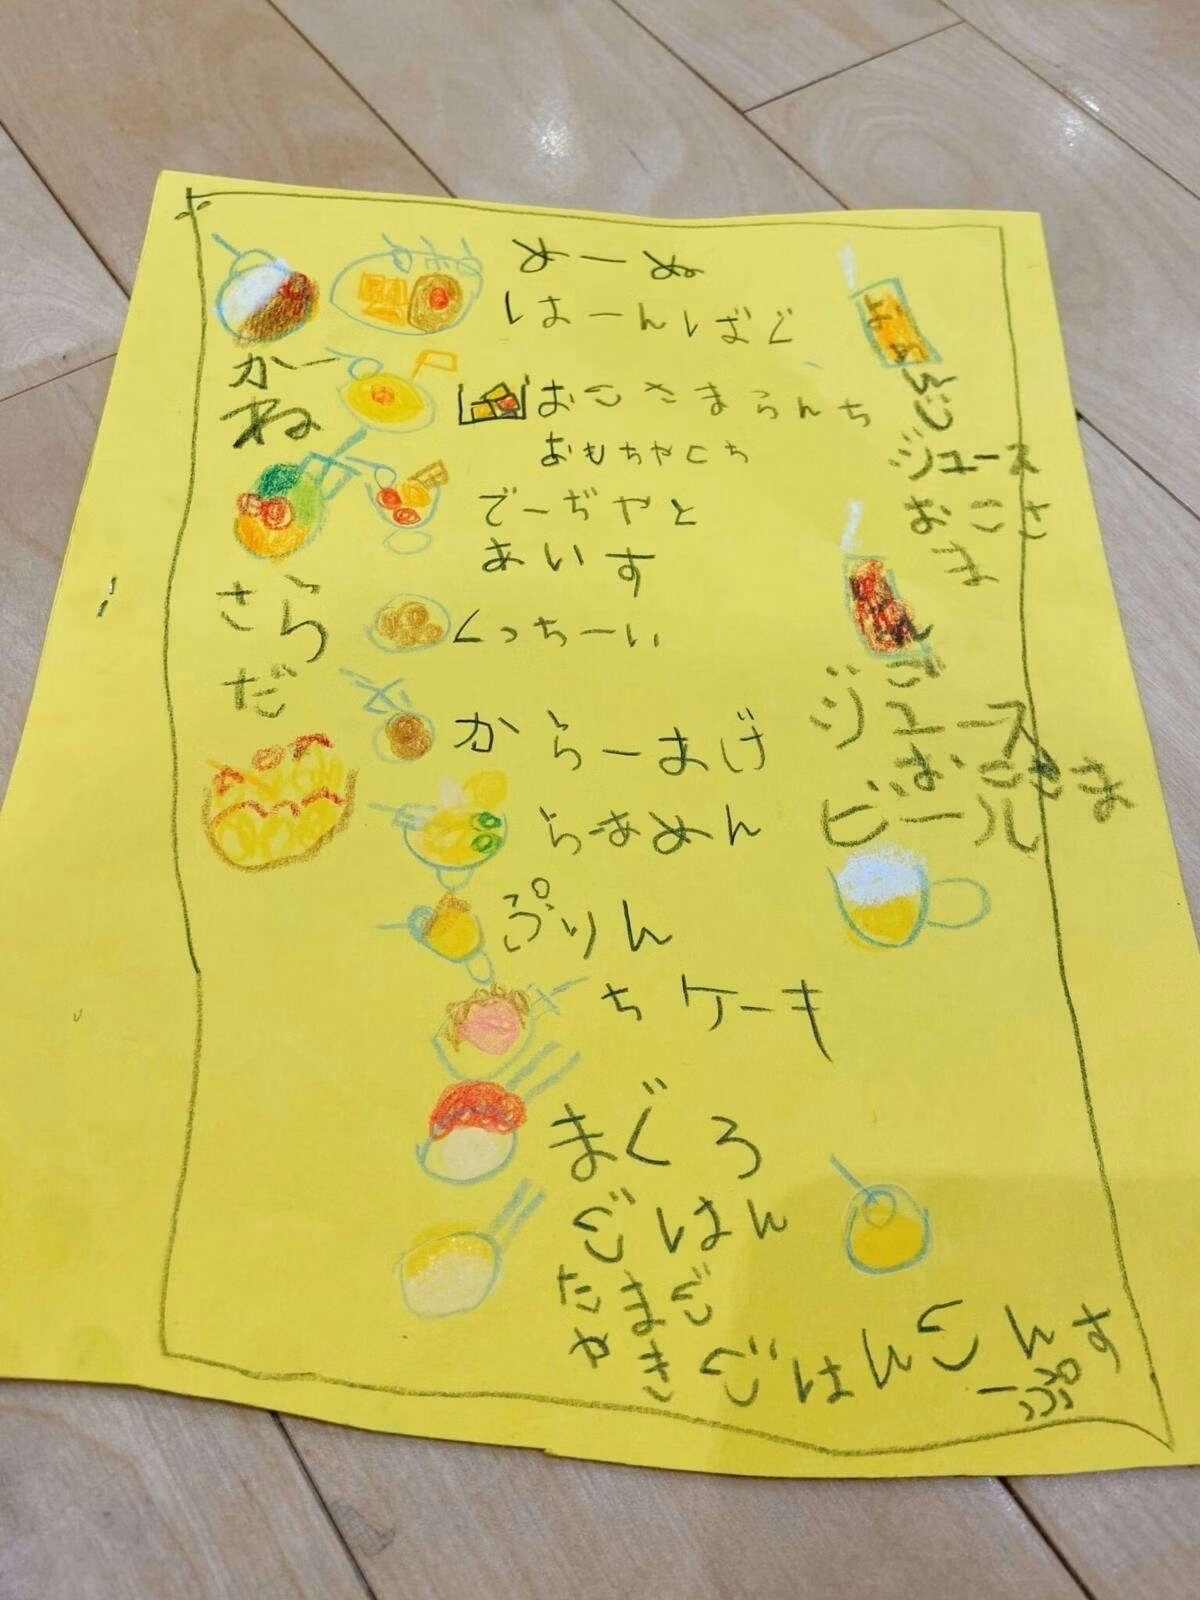 めーぬ
はーんばぐ
おこさまらんち
おもちゃこち
でーぢやと
あいす
くっちーい
からーあげ
らあめん
ぷりん
ちケーキ
まぐろ
ごはん
たまご
やきごはん
こんす
ーぷ
かー
ね
さら
だ
ジュース
おこさ
ま
ジュース
おこさま
ビール